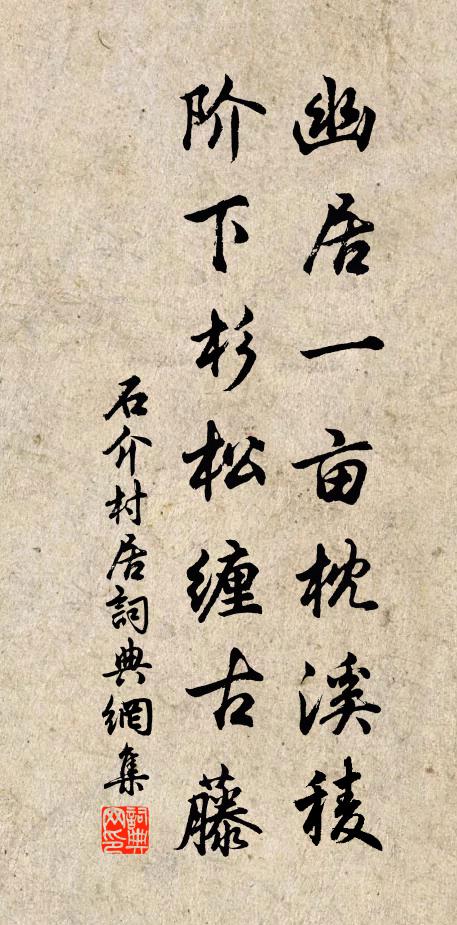 幽居一亩枕溪稜
阶下杉松缠古藤
石介村居詞典網集
詞典网印